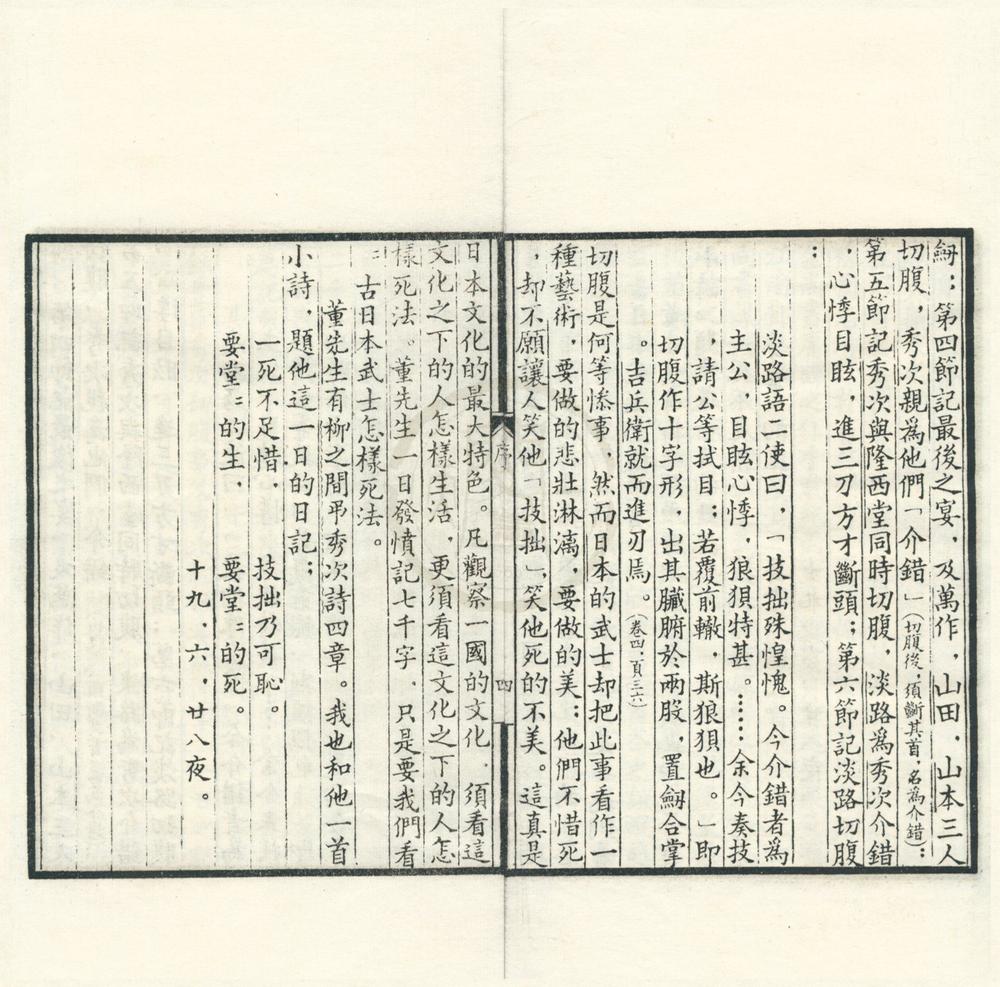 𠞰；第四節記最後之宴，及萬作，山田，山本三人
切腹，秀次親為他們「介錯」（切腹後，須斷其首，名為介錯）；
第五節記秀次與隆西堂同時切腹，淡路為秀次介錯
，心悸目眩，進三刃方才斷頭；第六節記淡路切腹
：
淡路語二使曰，「技拙殊惶愧。今介錯者為
主公，目眩心悸，狼狽特甚。……余今奏技
，請公等拭目；若覆前轍，斯狼狽也。」即
切腹作十字形，出其臟腑於兩股，置劒合掌
。吉兵衛就而進刃焉。（卷四，頁三六）
切腹是何等慘事，然而日本的武士却把此事看作一
種藝術，要做的悲壯淋漓，要做的美；他們不惜死
，却不願讓人笑他「技拙」，笑他死的不美。這真是
序
四
日本文化的最大特色。凡觀察一國的文化，須看這
文化之下的人怎樣生活，更須看這文化之下的人怎
樣死法。董先生一日發憤記七千字，只是要我們看
：古日本武士怎樣死法。
董先生有柳之間弔秀次詩四章。我也和他一首
小詩，題他這一日的日記；
一死不足惜，技拙乃可恥。
要堂〻的生，要堂〻的死。
十九，六，廿八夜。